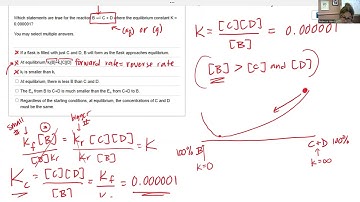 Which statements are true for the reaction B ⇌ C + D where the equilibrium constant K =
0.000001?
You may select multiple answers.
(aq) or (g)
If a flask is filled with just C and D, B will form as the flask approaches equilibrium.
At equilibrium, kf[B]=kr[C][D] forward rate = reverse rate
kf is smaller than kr
At equilibrium, there is less B than C and D.
The Ea from B to C+D is much smaller than the Ea from C+D to B.
Regardless of the starting conditions, at equilibrium, the concentrations of C and D
must be the same.
small bigger
Kf [B] = Kr [C][D] = K
[B] Kr Kr [B]
Kc = [C][D] = Kf = 0.000001
[B]
K = [C][D] = 0.000001
[B]
([B] > [C] and [D])
100% B C+D 100%
K=0 K=∞